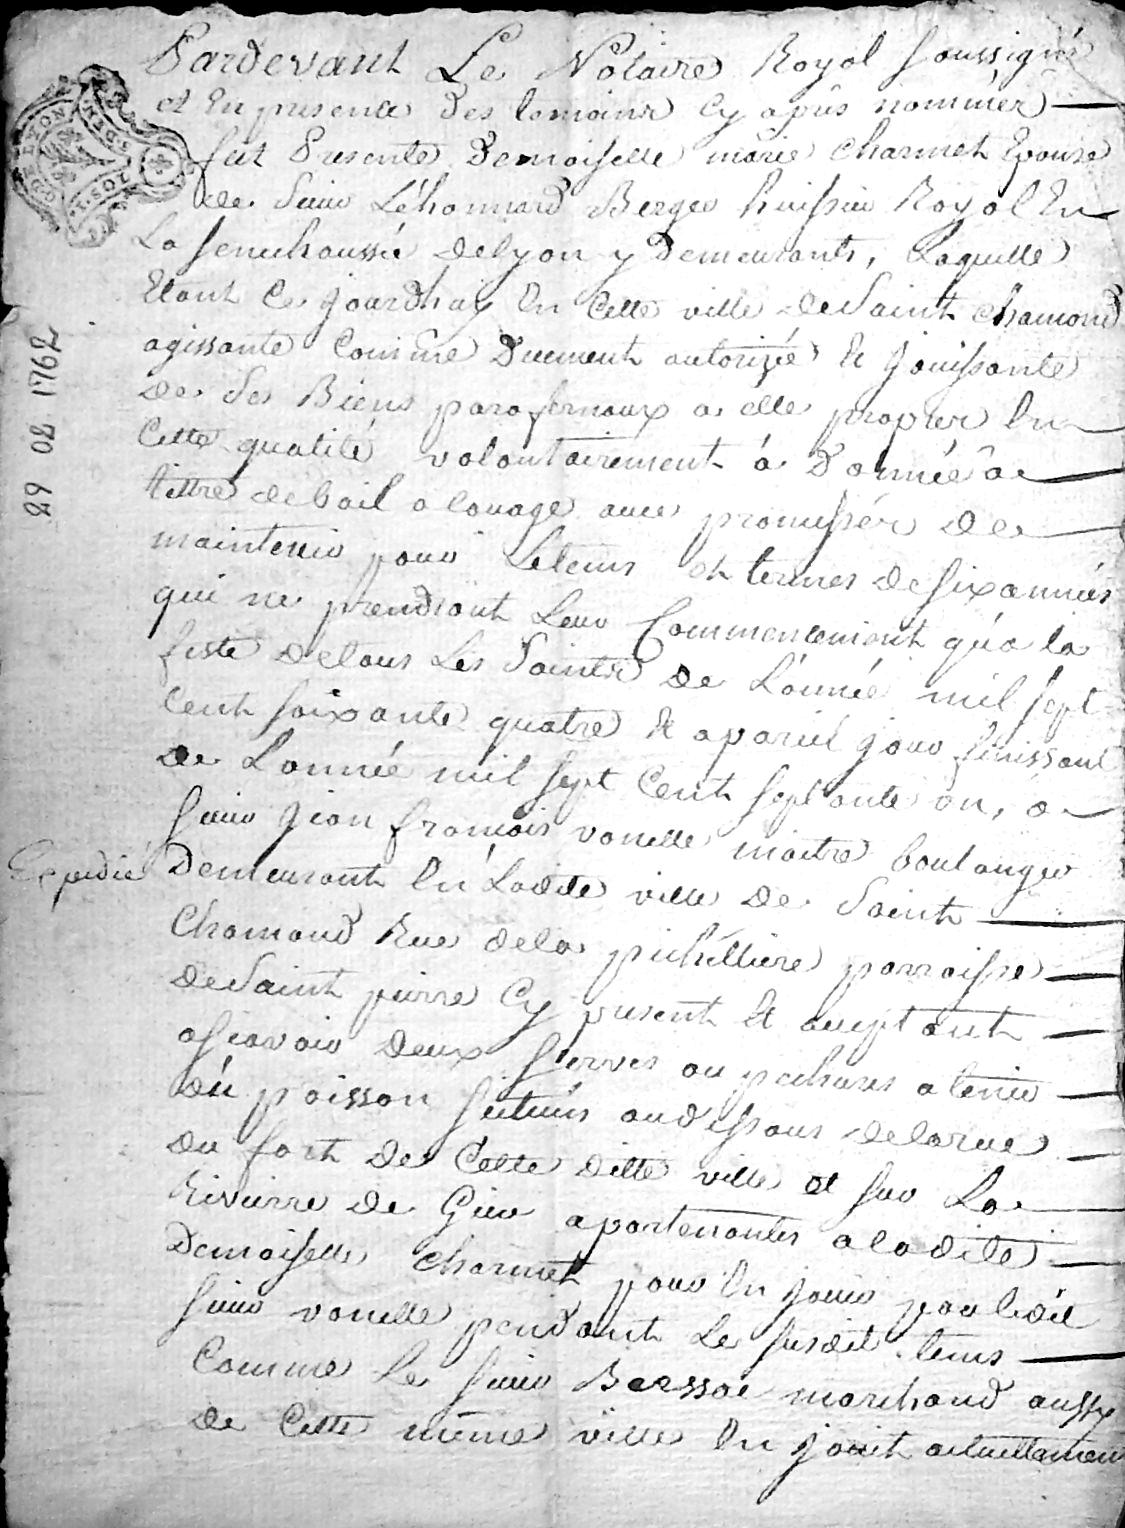 Pardevant Le Notaire Royal soussigné
et En presence des temoins Cy apprès nommér
fut Presente Demoiselle marie charmet Epouse
de Sieur Léhonnard Berger huissier Royal En
La senechaussée delyon y Demeurants, Laquelle
Etant Ce jourdhuy En Cette ville deSaint chamond
agissante Comme Duement autorizée et jouissante
de Ses Biens parafernaux a elle proprer En
Cette qualité volontairement á Donnée a
tittre debail a louage avec promesser de
maintenir pour Letems et termes desixannées
qui ne prendront Leur Commencement qúa la
feste detous Les Saints de L'année mil sept
Cent soixante quatre et apareil jour finissant
de L'année mil sept Cent septante un, a
sieur jean françois vanelle maitre boulanger
Demeurant En Ladite ville de Saint
Chamond Rue dela parroisse
deSaint pierre Cy present et aceptant
asçavoir deux serves ou pecheres atenir
du poisson sittuées audessous delarue
du fort de Cette ditte ville et sur La
Rivierre de Gier apartenantes aladite
Demoiselle charmet pour En jouir par ledit
sieur vanelle pendant Le susdit tems
Comme Le sieur marchand aussy
de Cette même ville En jouit actuellement
Expedié
29 02 1762
DE LYON
2 SOLS